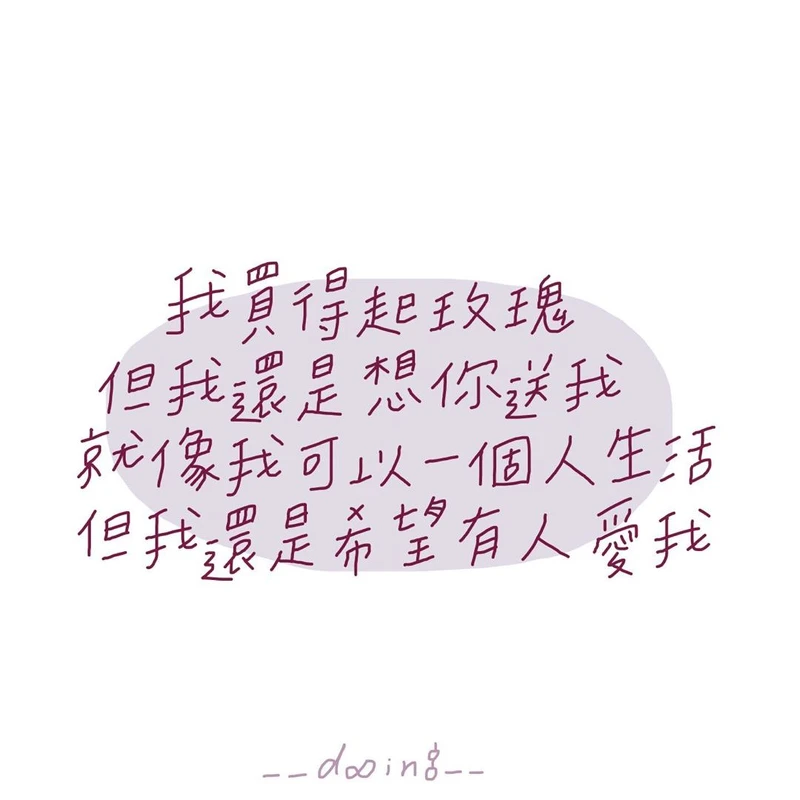 我買得起玫瑰
但我還是想你送我
就像我可以一個人生活
但我還是希望有人愛我
__dooing__